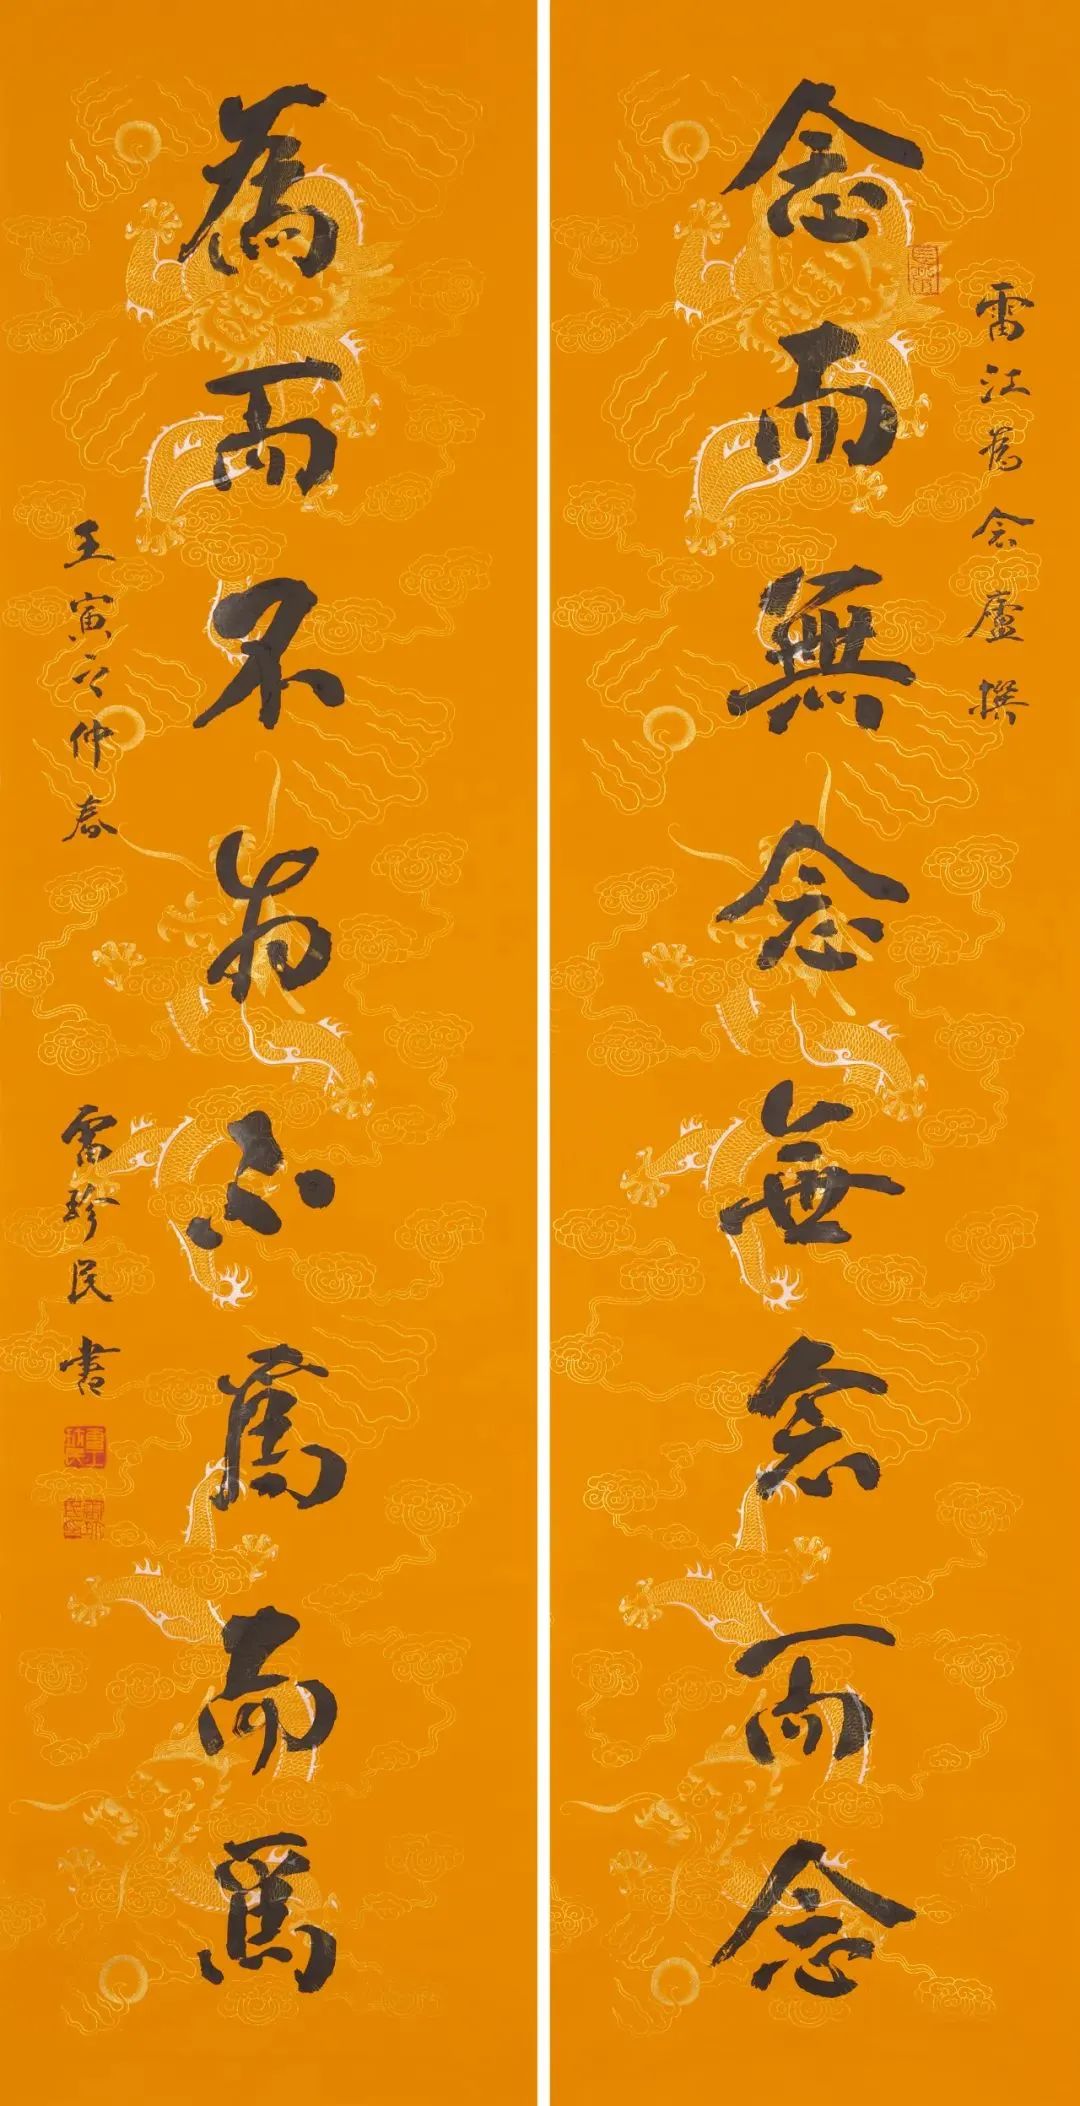 雷江為念廬撰
念而無念無念而念
為而不為不為而為
壬寅之仲春 雷珍民書